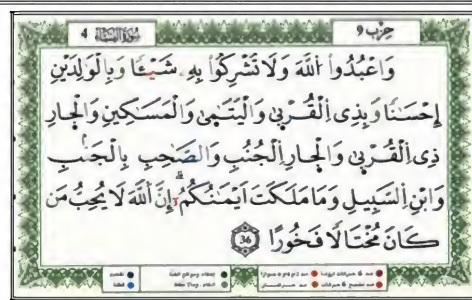 حِزْب 9
سُورَةُ النِّسَاء 4
وَاعْبُدُواْ اُللَّهَ وَلَا تُشْرِكُواْ بِهِۦ شَيْـٔاً وَبِالْوَٰلِدَيْنِ
إِحْسَٰناً وَبِذِے اِلْقُرْب۪ىٰ وَالْيَتَٰم۪ىٰ وَالْمَسَٰكِينِ وَالْج۪ارِ
ذِے اِلْقُرْب۪ىٰ وَالْج۪ارِ اِلْجُنُبِ وَالصَّاحِبِ بِالْجَنۢبِ
وَابْنِ اِلسَّبِيلِ وَمَا مَلَكَتَ اَيْمَٰنُكُمُۥٓ إِنَّ اَللَّهَ لَا يُحِبُّ مَن
كَانَ مُخْتَالاً فَخُوراً 36